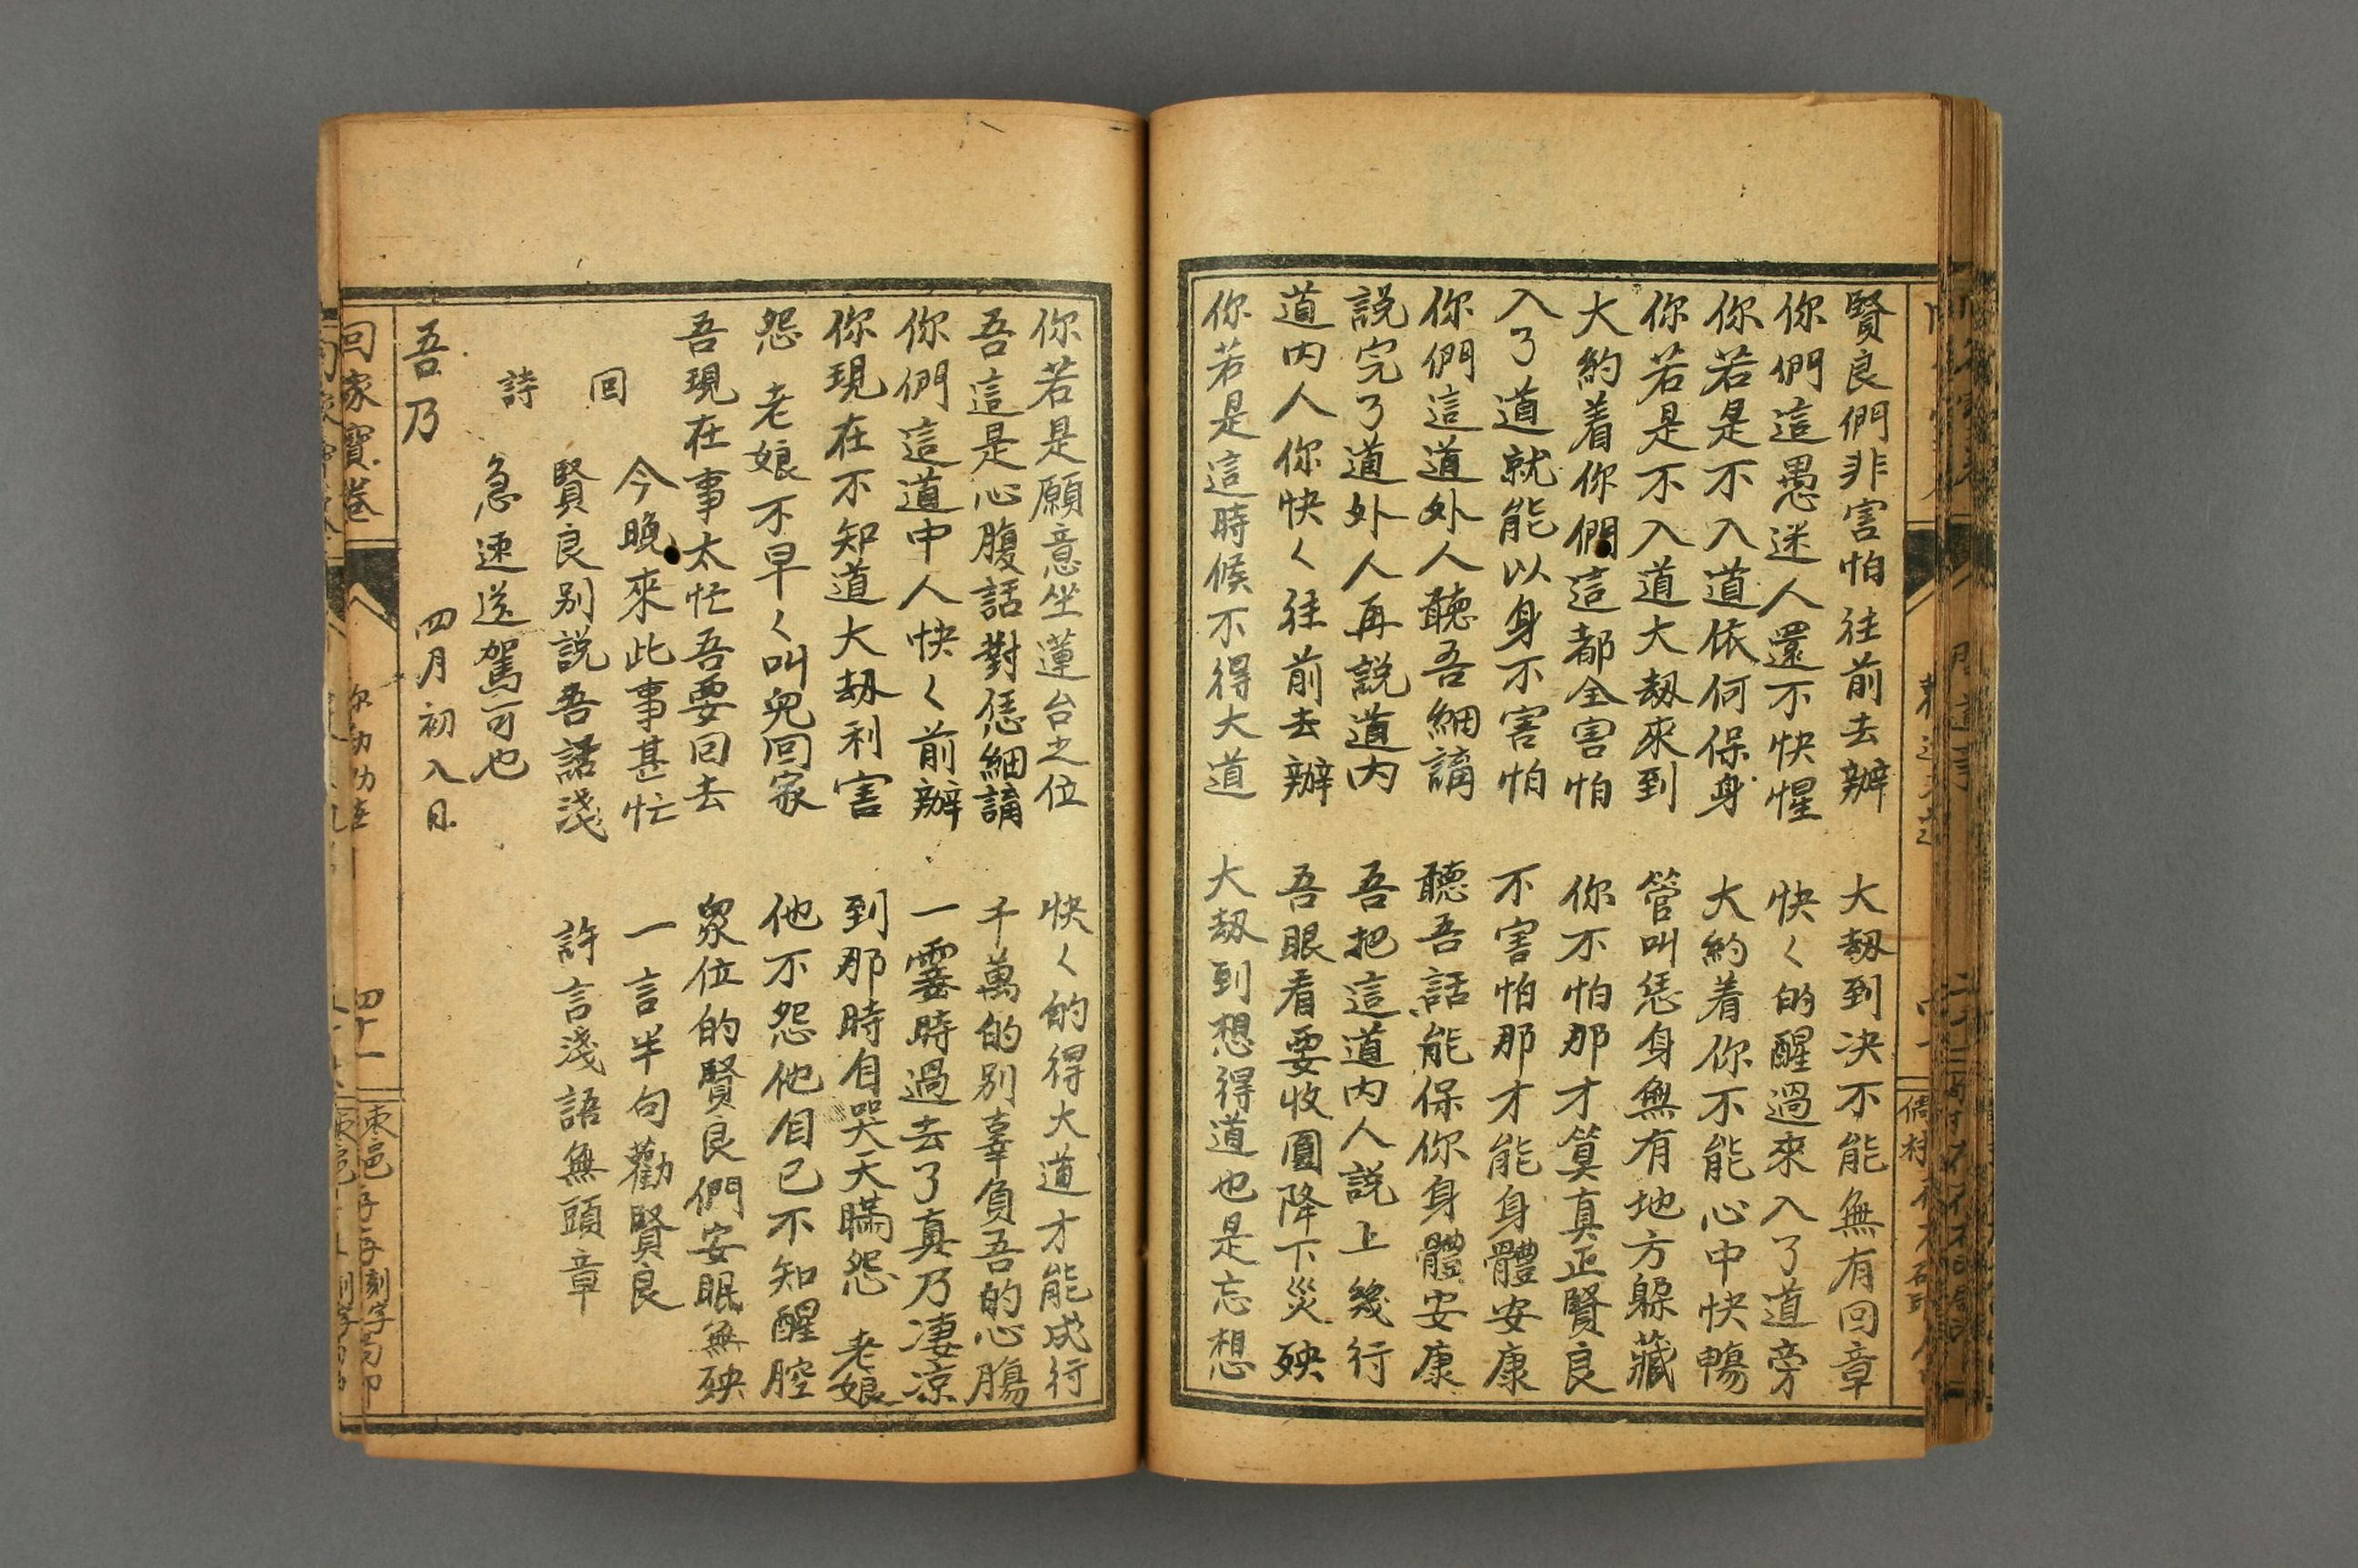 賢良們非害怕往前去辦 大刼到决不能無有回章
你們這愚迷人還不快惺 快く的醒過來入了道旁
你若是不入道依何保身 大約着你不能心中快暢
你若是不入道大刼來到 管叫恁身無有地方躲藏
大約着你們這都全害怕 你不怕那才算真正賢良
入了道就能以身不害怕 不害怕那才能身體安康
你們這道外人聽吾細講 聽吾話能保你身體安康
説完了道外人再説道内 吾把這道内人説上幾行
道内人你快く往前去辦 吾眼看要收圓降下災殃
你若是這時候不得大道 大刼到想得道也是忘想
你若是願意坐蓮台之位 快く的得大道才能成行
吾這是心腹話對恁細講 千萬的别辜負吾的心膓
你們這道中人快く前辦 一霎時過去了真乃凄凉
你現在不知道大刼利害 到那時自哭天瞞怨 老娘
怨 老娘不早く叫兒回家 他不怨他自已不知醒腔
吾現在事太忙吾要回去 衆位的賢良們安眠無殃
回 今晚來此事甚忙 一言半句勸賢良
詩 賢良别説吾話淺 許言淺語無頭章
急速送駕可也
吾乃 四月初八日
回家寳卷 四十一 棗邑 刻字局印